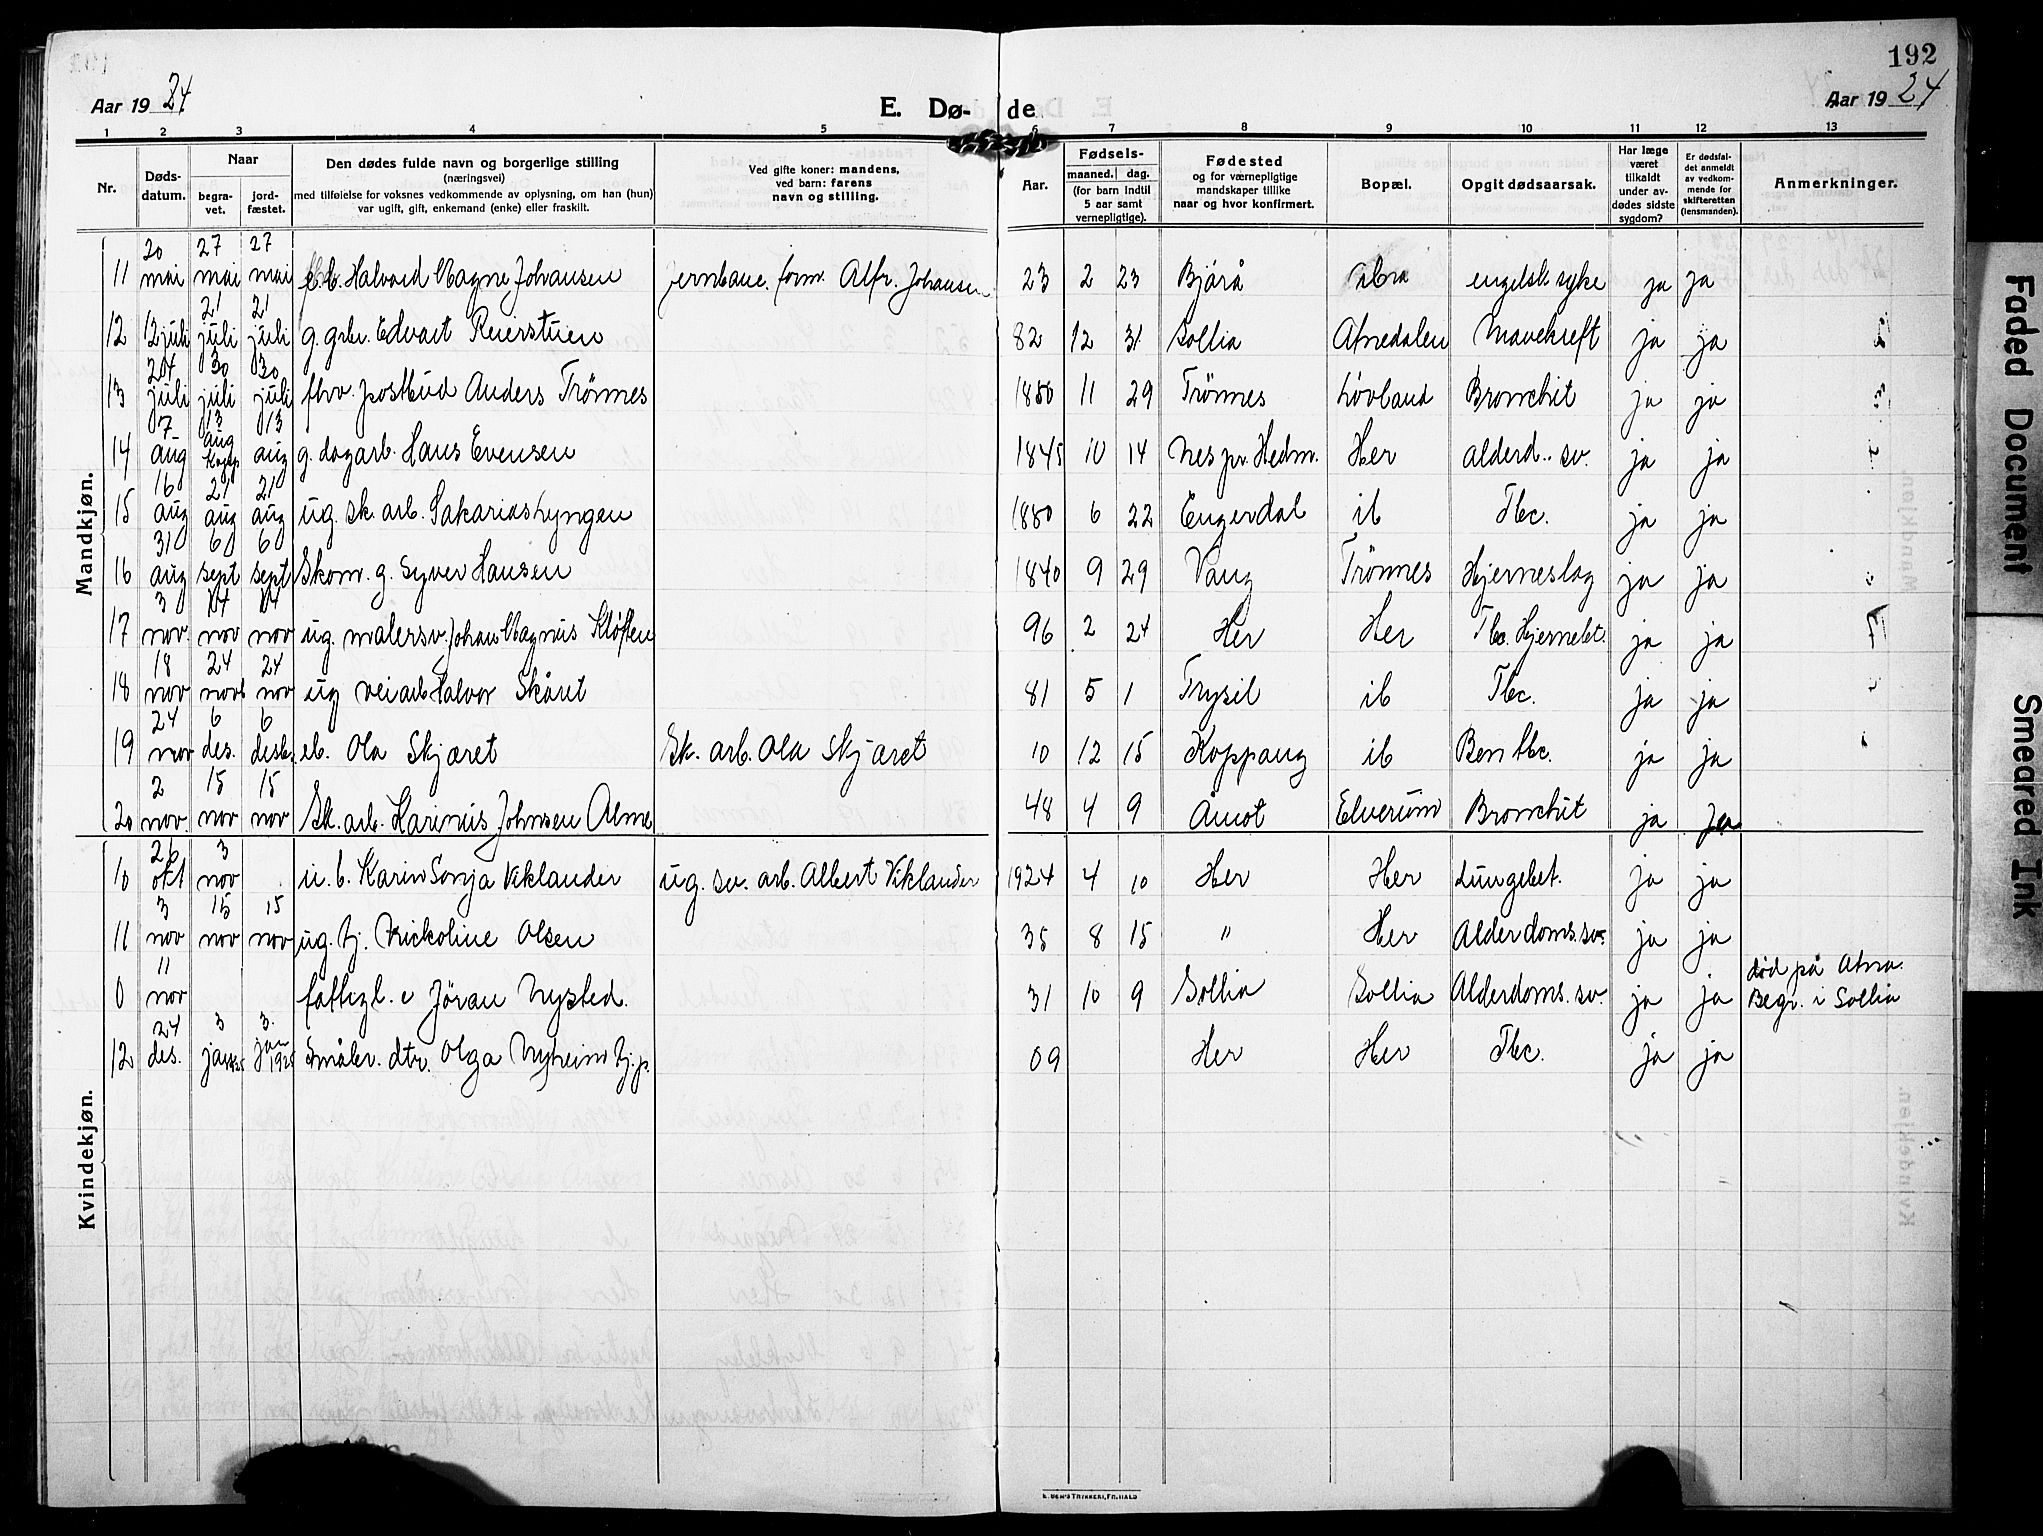 192
Aar 1924 E. Dø- de Aar 1924
1 2 3 4 5 6 7 8 9 10 11 12 13
Nr. Døds-datum. Naar begra-vet. jord-fæstet. Den dødes fulde navn og borgerlige stilling (næringsvei) med tilføielse for voksnes vedkommende av oplysning, om han (hun) var ugift, gift, enkemand (enke) eller fraskilt. Ved gifte koner: mandens, ved barn: farens navn og stilling. Aar. Fødsels- maaned. dag. (for barn indtil 5 aar samt vernepligtige). Fødested og for værnepligtige mandskaper tillike naar og hvor konfirmert. Bopæl. Opgit dødsaarsak. Har læge været tilkaldt under av-dødes sidste sygdom? Er dødsfal-det anmeldt av vedkom-mende for skifteretten (lensmanden). Anmerkninger.
Mandkjøn.
11 20 mai 27 mai 27 mai Halvard Magne Johansen Jernbane. form. Alfr. Johansen 23 2 23 Bjørå Atna engelsk syke ja ja
12 12 juli 21 juli 21 juli g. gbr. Edvart Reierstuen 82 12 31 Sollia Atnedalen Mavekreft ja ja
13 24 juli 30 juli 30 juli fhv. postbud Anders Trönnes 1880 11 29 Trönnes Lövland Bronchit ja ja
14 7 aug 13 aug Kopp 13 aug g. dagarb. Hans Evensen 1845 10 14 Nes pr. Hedm. Her alderd.. sv. ja ja
15 16 aug 21 aug 21 aug ug. sk. arb. Sakarias Lyngen 1880 6 22 Engerdal ib Tbc. ja ja
16 31 aug 6 sept 6 sept Skom. g. Syver Hansen 1840 9 29 Vang Trönnes Hjerneslag ja ja
17 3 nov. 14 nov 14 nov ug. malersv. Johan Magnus Kløften 96 2 24 Her Her Tbc. Hjernebet. ja ja
18 18 nov 24 nov 24 nov ug veiarb Halvor Skåret 81 5 1 Trysil ib Tbc. ja ja
19 24 nov 6 des. 6 desb. eb. Ola Skjæret Sk. arb. Ola Skjæret 10 12 15 Koppang ib Ben tbc. ja ja
20 2 nov. 15 nov 15 nov Sk. arb. Karinus Johnsen Alme 48 4 9 Åmot Elverum Bronchit ja ja
Kvindekjøn.
10 26 okt 3 nov u. b. Karin Sonja Viklander ug. sv. arb. Albert Viklander 1924 4 10 Her Her Lungebet. ja ja
11 3 nov 15 nov 15 nov ug. tj. Nickoline Olsen 35 8 15 " Her Alderdoms. sv. ja ja
0 11 nov fattigl. e Jöran Nysted. 31 10 9 Sollia Sollia Alderdoms. sv. ja ja død på Atna. Begr. i Sollia
12 24 des. 3 jan 1925 3. jan 1925 Småbr. dtr. Olga Nyheim tj. p. 09 Her Her Tbc. ja ja
Faded Document
Smeared Ink